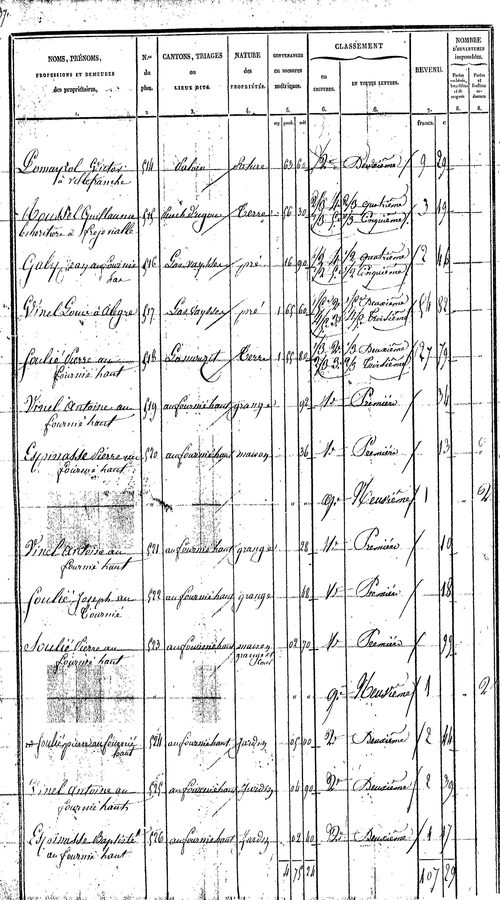 NOMS, PRÉNOMS,
PROFESSIONS ET DEMEURES
des propriétaires.
1.
N.os
du
plan.
2.
CANTONS, TRIAGES
ou
LIEUX DITS.
3.
NATURE
des
PROPRIÉTÉS.
4.
CONTENANCES
en mesures
métriques.
5.
CLASSEMENT
en
CHIFFRES.
6.
EN TOUTES LETTRES.
6.
REVENU.
7.
francs. c
NOMBRE
D'OUVERTURES
imposables.
8. 8.
514 Pature 63 60 2e Deuxième 9 29
à villefranche
Guillaume 515 Terre 56 30 2/3 4e 1/3 5e 2/3 quatrième 3 19
1/3 Cinquième
516 Lasvaysses pré 16 90 1/2 4e 1/2 5e 1/2 quatrième 2 46
1/2 Cinquième
Vinel Louis à Alegre 517 Lasvaysses pré 1 65 60 1/2 2e 1/2 3e 1/2 Deuxième 54 82
1/2 Troisième
Soulié Pierre au 518 Terre 1 55 80 1/3 2e 2/3 3e 1/3 Deuxième 27 79
fournié haut 2/3 Troisième
Vinel Antoine au 519 au fournié haut grange 92 1re Première 34
fournié haut
Espinasse Pierre au 520 au fournié haut maison 36 1re Première 13
fournié haut
" " " 9e Neuvième 1 " 2
Vinel Antoine au 521 au fournié haut grange 28 1re Première 10
fournié haut
Soulié Joseph au 522 au fournié haut grange 48 1re Première 18
fournié
Soulié Pierre au 523 au fournié haut maison 02 70 1re Première 99
fournié haut grange et
" " " 9e Neuvième 1 " 2
Soulié pierre au fournié 524 au fournié haut Jardin 05 00 2e Deuxième 2 44
haut
Vinel Antoine au 525 au fournié haut Jardin 04 90 2e Deuxième 2 39
fournié haut
Espinasse Baptiste 526 au fournié haut Jardin 02 40 2e Deuxième 1 17
au fournié haut
4 75 24 107 29